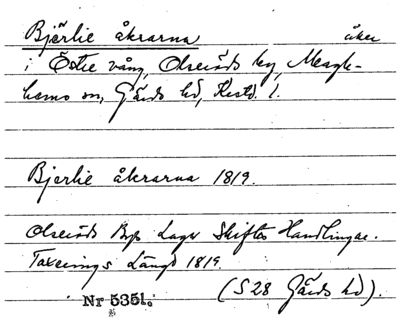 Bjärlie åkrarna åker
i Östre vång, Olseröds by, Maagle-
hems sn, Gärds hd, Krstd. l.
Bjerlie åkrarna 1819.
Olseröds Bys Laga Skiftes Handlingar.
Taxerings Längd 1819.
(S 28 Gärds hd).
Nr 5351.